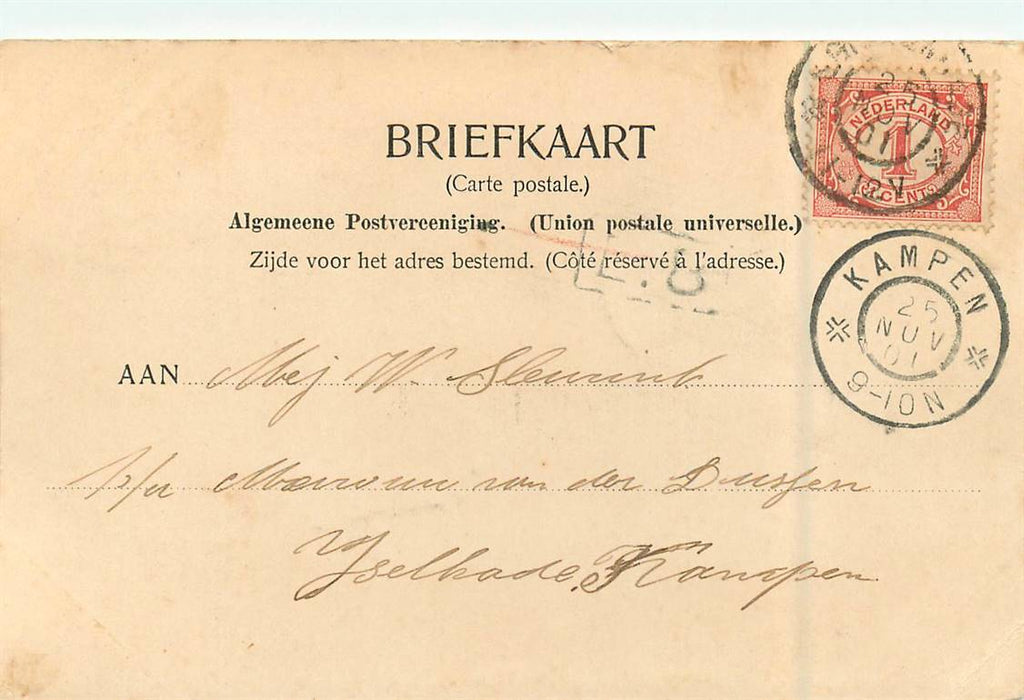 BRIEFKAART
(Carte postale.)
Algemeene Postvereeniging. (Union postale universelle.)
Zijde voor het adres bestemd. (Côté réservé à l'adresse.)
NEDERLAND
1
CENT
25
NOV
01
KAMPEN
25
NOV
01
9-10N
AAN Mej W.
p/a Mevrouw van der Dussen
Yselkade, Kampen